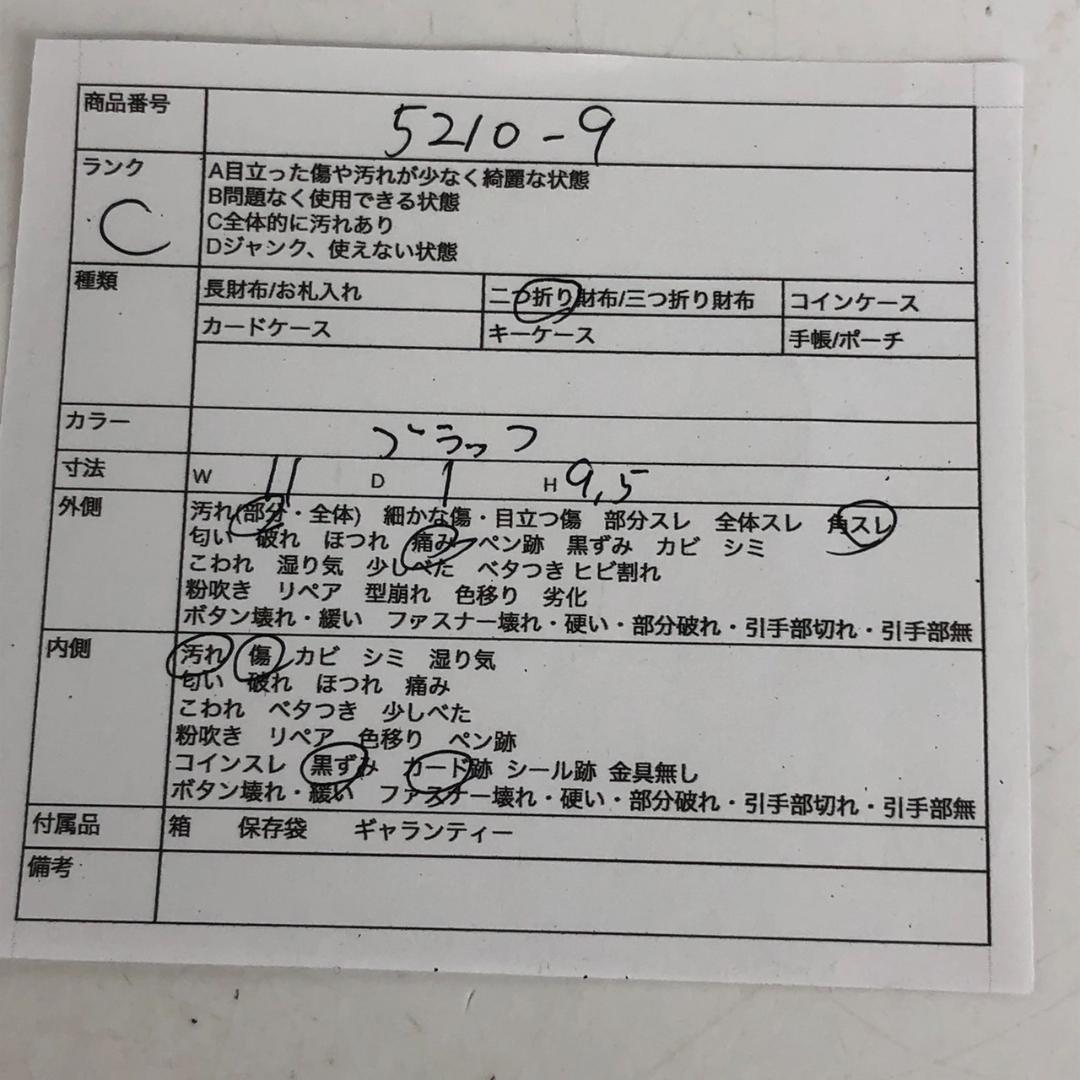 商品番号 5210-9
ランク C
A目立った傷や汚れが少なく綺麗な状態
B問題なく使用できる状態
C全体的に汚れあり
Dジャンク、使えない状態
種類
長財布/お札入れ 二つ折り財布/三つ折り財布 コインケース
カードケース キーケース 手帳/ポーチ
カラー ブラック
寸法 W 11 D 1 H 9,5
外側
汚れ(部分・全体) 細かな傷・目立つ傷 部分スレ 全体スレ 角スレ
匂い 破れ ほつれ 痛み ペン跡 黒ずみ カビ シミ
こわれ 湿り気 少しべた ベタつき ヒビ割れ
粉吹き リペア 型崩れ 色移り 劣化
ボタン壊れ・緩い ファスナー壊れ・硬い・部分破れ・引手部切れ・引手部無
内側
汚れ 傷 カビ シミ 湿り気
匂い 破れ ほつれ 痛み
こわれ ベタつき 少しべた
粉吹き リペア 色移り ペン跡
コインスレ 黒ずみ カード跡 シール跡 金具無し
ボタン壊れ・緩い ファスナー壊れ・硬い・部分破れ・引手部切れ・引手部無
付属品 箱 保存袋 ギャランティー
備考